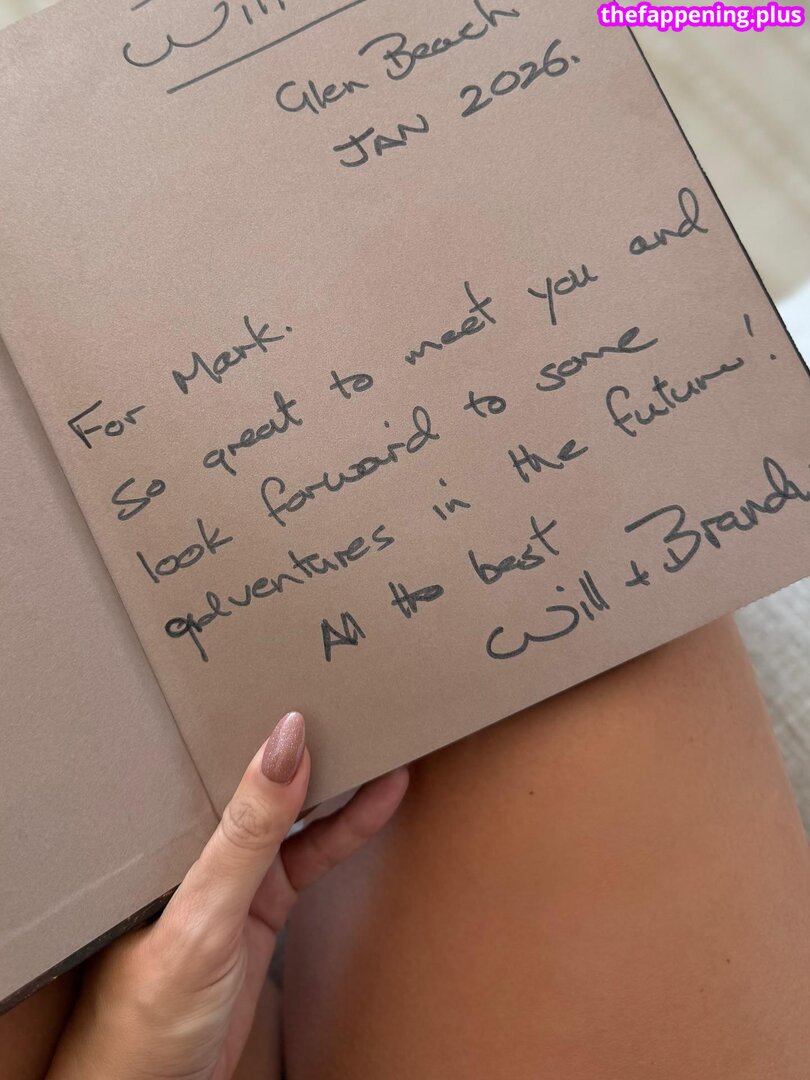 thefappening.plus
Will
Glen Beach
JAN 2026.
For Mark.
So great to meet you and
look forward to some
adventures in the future!
All the best
Will + Brandi